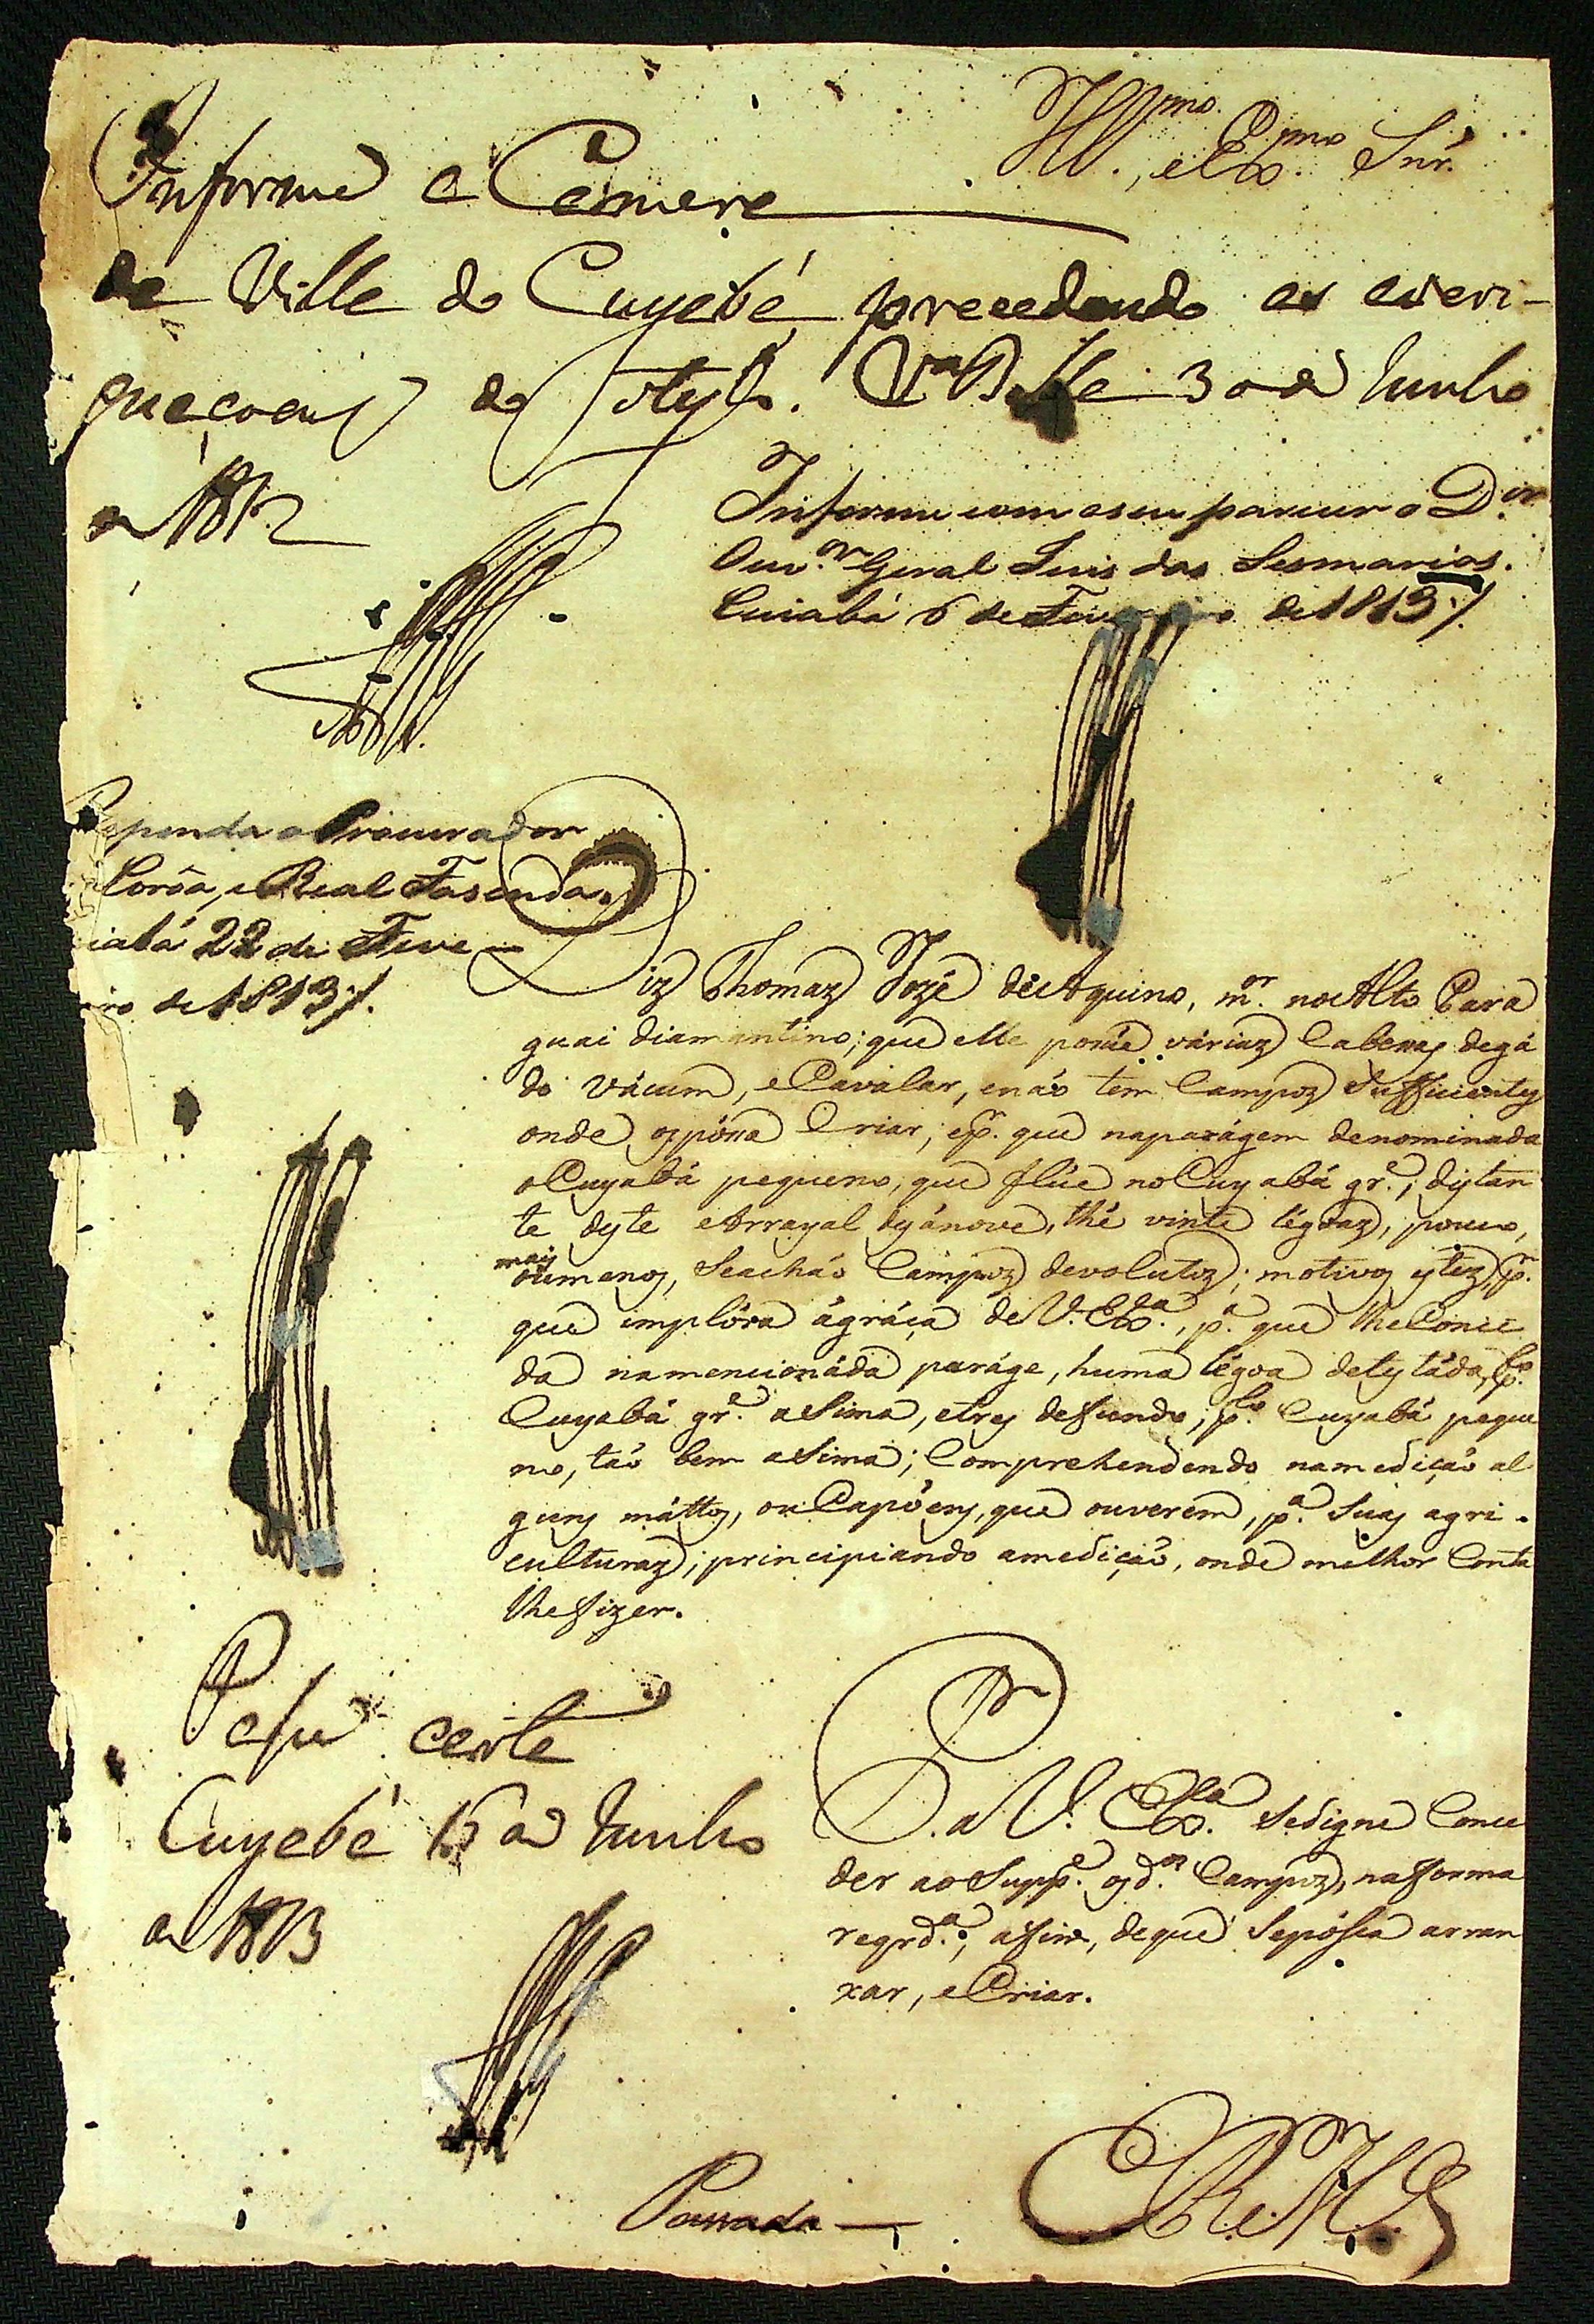 Ill.mo, e Ex.mo Snr.
Informe a Camara
da Villa do Cuyabá precedendo as averi-
guaçoens do Estylo. V.a Bella 30 de Junho
de 1812
Informe com o seu parecer o D.or
Ouv.or Geral Juis das Sesmarias.
Cuiabá 6 de Fevereiro de 1813 /.
Responda o Procurador
Corôa, e Real Fasenda.
iabá 22 de Feve-
iro de 1813 /.
Diz Thomaz Jozé de Aquino, m.or no Alto Para
guai diamantino; que elle posúe váriaz Cabesas de gá
do vácum, e Cavalar, e náo tem Campoz Sufficientes
onde os póssa Criar; e p.r que na parágem denominada
o Cuyabá pequeno, que flúe no Cuyabá gr.e; distan
te deste Arrayal desánove, thé vinte légoaz, pouco,
mais
ou menos, Se acháo Campoz devolutoz; motivos estez, p.r
que implóra ágráça de V. Ex.a, p.a que lhe Conce
da na mencionáda paráge, huma légoa de testáda, p.lo
Cuyabá gr.e a Sima, e tres de fundo, p.lo Cuyabá peque
no, táo bem a Sima; Comprehendendo na mediçáo al
guns máttos, ou Capóens, que ouverem, p.a Suas agri-
culturaz; principiando a mediçáo, onde melhor Conta
lhe fizer.
P.
P. a V. Ex.a Se digne Conce
der ao Supp.e os d.os Campoz, na fforma
reqrd.a, afim, de que Se póssa arran
xar, e Criar.
Passe carta
Cuyabá 15 de Junho
de 1813
Passada
E R M.ce